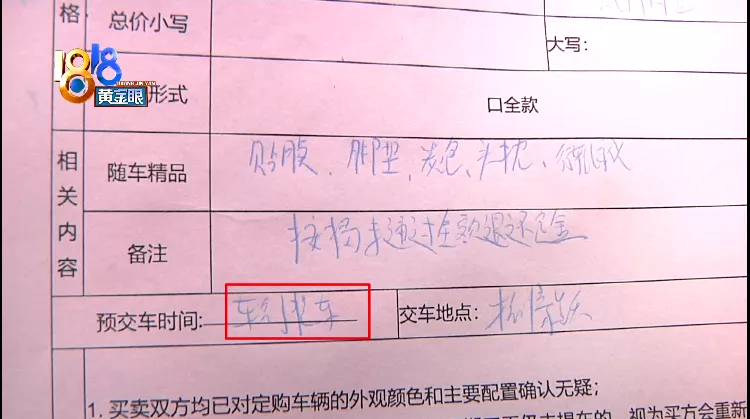 格 总价小写
大写：
1818
黄金眼
形式 口全款
相关内容
随车精品 贴膜、脚垫、炭包、头枕、
备注 按揭未通过全额退还定金
预交车时间: 车到提车 交车地点: 杭
1. 买卖双方均已对定购车辆的外观颜色和主要配置确认无疑;
视为买方会重新